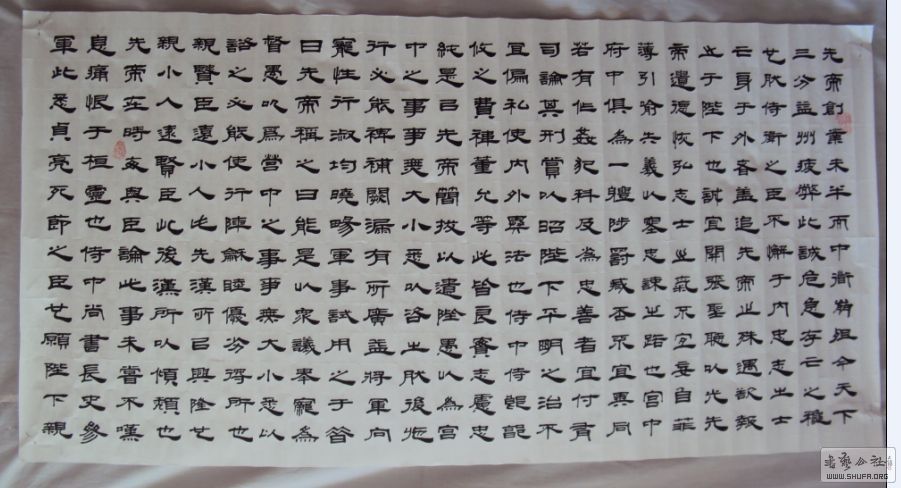 先帝創業未半而中衜崩殂今天下
三分益州疲弊此誠危急存亡之穐
也然侍衛之臣不懈于內忠志之士
亡身于外者蓋追先帝之殊遇欲報
之于陛下也誠宜開張聖聽以光先
帝遺德恢弘志士之氣不宜妄自菲
薄引喻失義以塞忠諫之路也宮中
府中俱為一體陟罰臧否不宜異同
若有作姦犯科及為忠善者宜付有
司論其刑賞以昭陛下平明之治不
宜偏私使內外異法也侍中侍郎
攸之費禕董允等此皆良實志慮忠
純是已先帝簡拔以遺陛愚以為宮
中之事事無大小悉以咨之然後施
行必能裨補闕漏有所廣益將軍向
寵性行淑均曉暢軍事試用之于昔
日先帝稱之曰能是以眾議舉寵為
督愚以為營中之事事無大小悉以
諮之必能使行陣龢睦優劣得所也
親賢臣遠小人此先漢所已興隆也
親小人遠賢臣此後漢所以傾頹也
先帝在時每與臣論此事未嘗不嘆
息痛恨于桓靈也侍中尚書長史參
軍此悉貞亮死節之臣也願陛下親
WWW.SHUFA.ORG